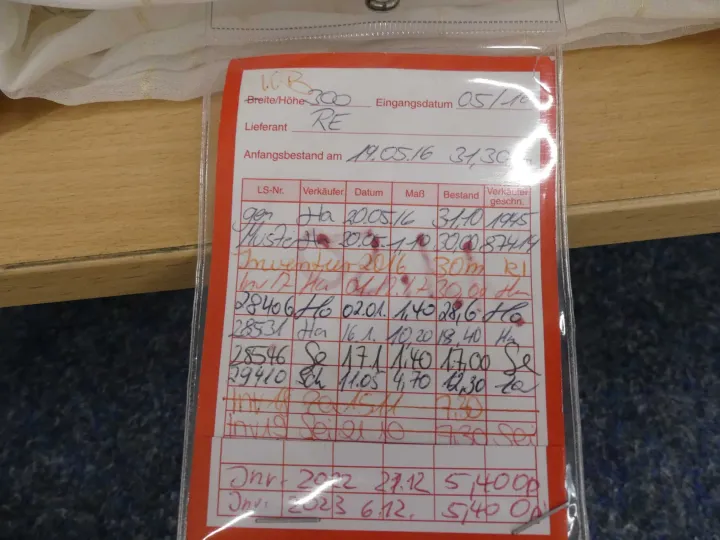 Breite/Höhe 300 Eingangsdatum 05/1
Lieferant RE
Anfangsbestand am 19.05.16 31,30 m
LS-Nr. Verkäufer Datum Maß Bestand Verkäufer geschn.
gen Ha 20.05.16 31,10 1945
Muster Ha 20.05. 1,10 30,00 87414
Inventur 2016 30m
Inv 17 Ha
28406 Ha 02.01. 1,40 28,6 Ha
28531 Ha 16.1. 10,20 18,40 Ha
28546 Se 17.1 1,40 17,00 Se
29410 Sch 11.05 4,70 12,30
Inv 18 15.11 7,30
Inv 19 Sei 21 10 7,30 Sei
Inv. 2022 27.12 5,40 Op
Inv. 2023 6.12. 5,40 Op